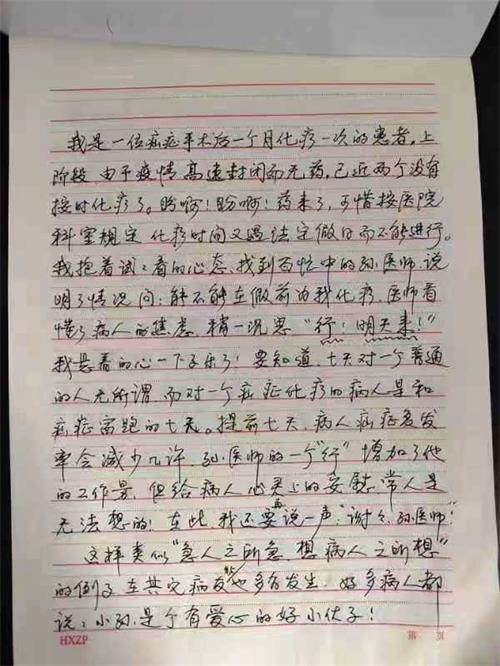 我是一位癌症手术后一个月化疗一次的患者。上
阶段由于疫情高速封闭而无药，已近两个没有
按时化疗了。盼啊！盼啊！药来了，可惜按医院
科室规定化疗时间又遇法定假日而不能进行。
我抱着试：看的心态，找到百忙中的孙医师，说
明了情况问：能不能在假前为我化疗，医师看
惜了病人的焦虑，稍一沉思“行！明天来！”
我悬着的心一下子乐了！要知道，七天对一个普通
的人无所谓，而对一个癌症化疗的病人是和
癌症赛跑的七天。提前七天，病人癌症复发
率会减少几许，孙医师的一个“行”增加了他
的工作量，但给病人心灵上的安慰，常人是
无法想的！在此，我还要再说一声：“谢谢孙医师！”
这样类似“急人之所急，想病人之所想”
的例子在其它病友处也多有发生，好多病人都
说：小孙是个有爱心的好小伙子！
HXZP 第 页